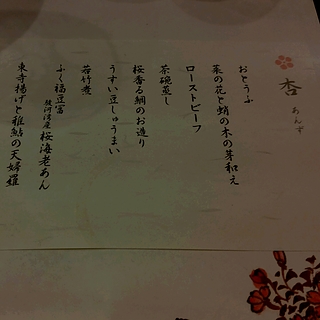 杏
あんず
おとうふ
菜の花と蛸の木の芽和え
ローストビーフ
茶碗蒸し
桜香る鯛のお造り
うすい豆しゅうまい
若竹煮
ふく福豆富
駿河湾産 桜海老あん
東寺揚げと稚鮎の天婦羅